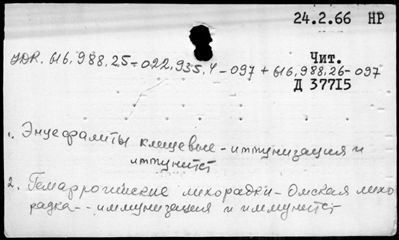 24.2.66 НР
УДК. 616.988.25-022.935.4-097+616.988.26-097
Чит.
Д 37715
1. Энцефалиты клещевые - иммунизация и
иммунитет
2. Геморрогические лихорадки - Омская лихо
радка -- иммунизация и иммунитет